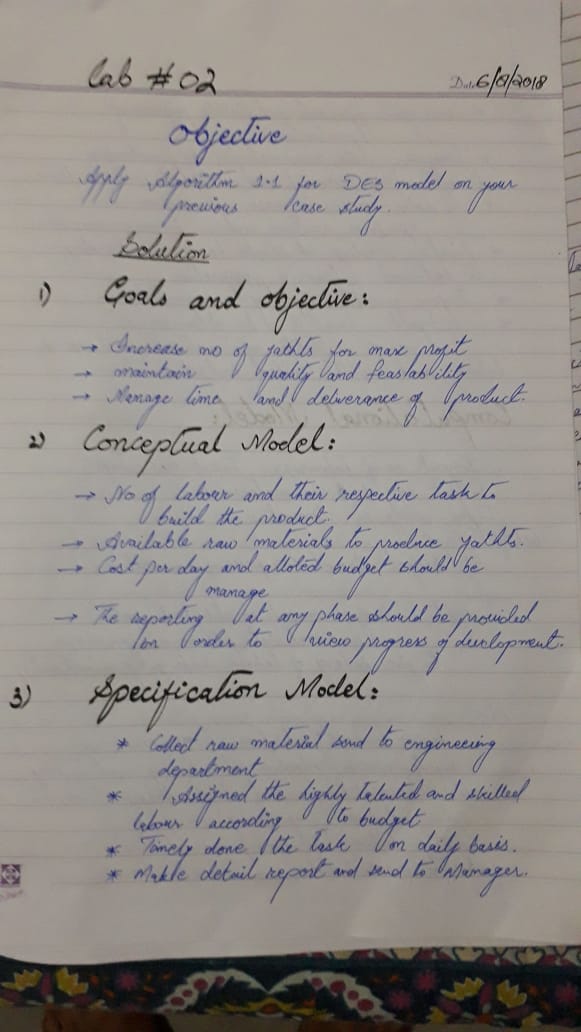 Lab # 02
Date: 6/8/2018
Objective
Apply Algorithm 1.1 for DES model on your
previous case study.
Solution
1) Goals and objective:
→ Increase no of yathts for max profit
→ maintain quality and feasability
→ Manage time and deliverance of product.
2) Conceptual Model:
→ No of labour and their respective task to
build the product.
→ Available raw materials to produce yathts.
→ Cost per day and alloted budget should be
manage
→ The reporting at any phase should be provided
in order to view progress of development.
3) Specification Model:
* Collect raw material send to engineering
department
* Assigned the highly talented and skilled
labour according to budget
* Timely done the task on daily basis.
* Make detail report and send to Manager.